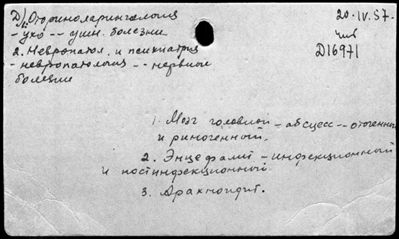 Д) Оториноларингология
- ухо -- ушн. болезни
2. Невропатол. и психиатрия
- невропатология -- нервные
болезни
20.IV.57.
чив
D16971
1. Мозг головной - абсцесс -- отогенный
и риногенный.
2. Энцефалит - инфекционный
и постинфекционный
3. Арахноидит.